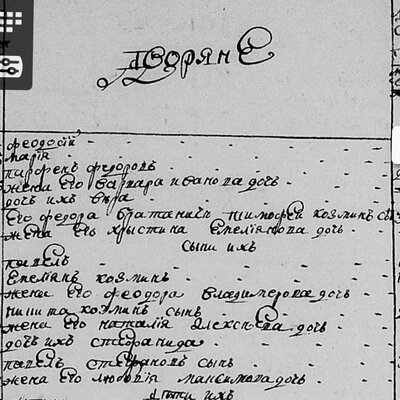 дворянЕ
феодосій
марія
парфенъ федоровъ
жена его варвара иванова дочь
дочь ихъ вѣра
его федора братаничъ тимофей козминъ
жена его христина Емеліянова дочь
сыни ихъ
павелъ
Емеліянъ козминъ
жена его феодора владимерова дочь
никита козминъ сынъ
жена его наталія Алексѣева дочь
дочь ихъ стефанида
павелъ стефановъ сынъ
жена его любовія максимова дочь
дѣти ихъ